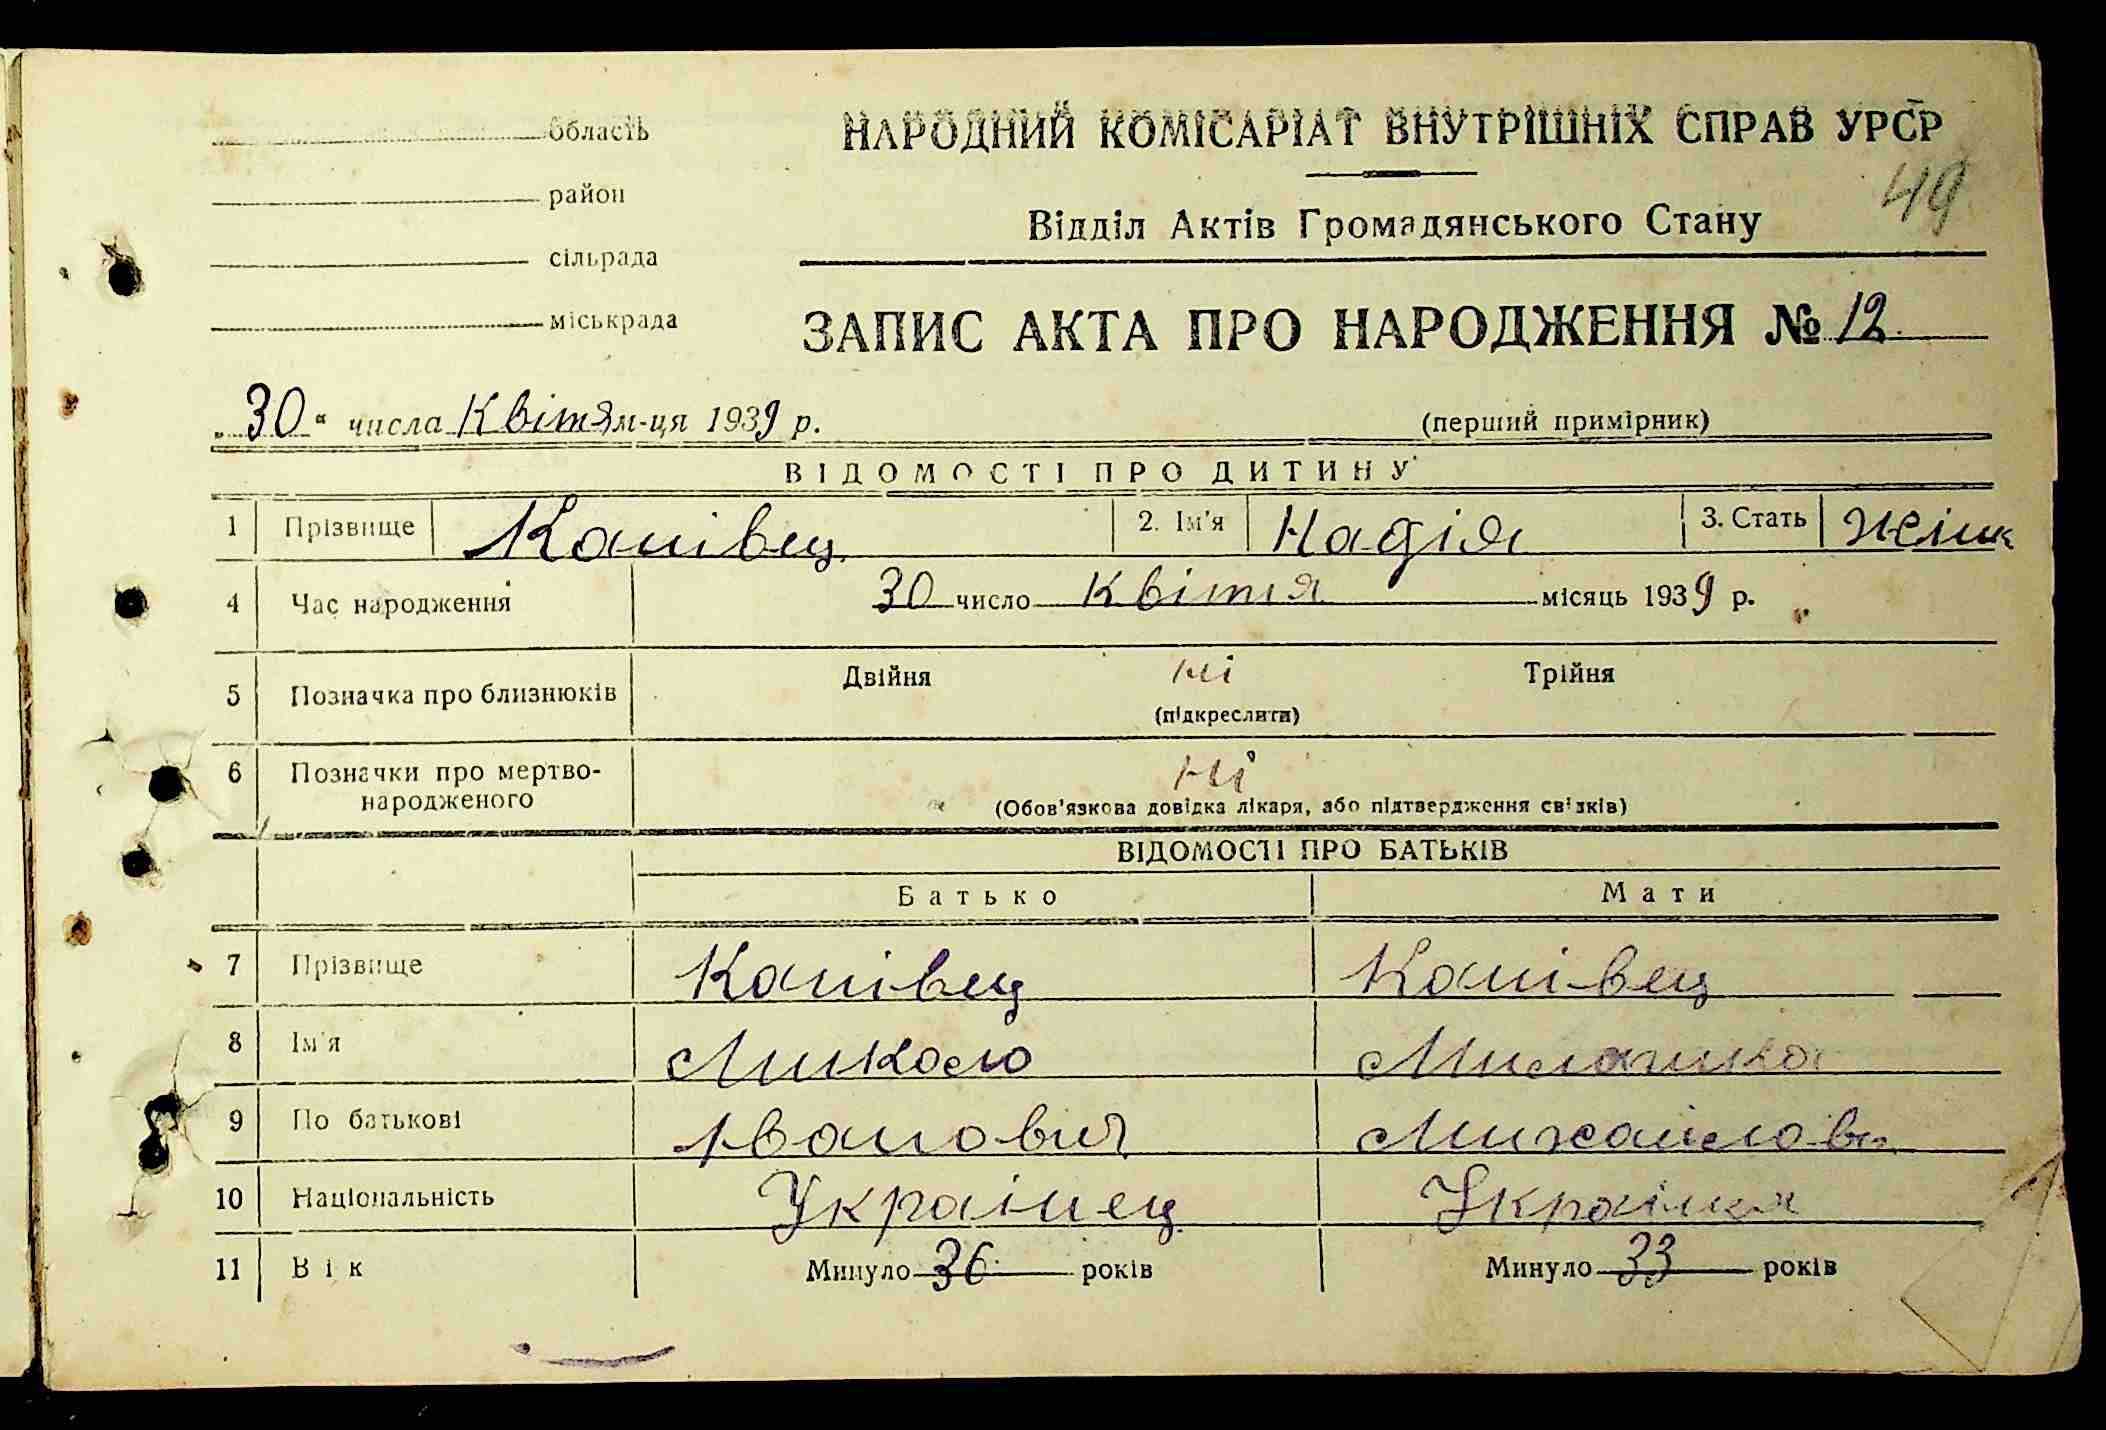 область
НАРОДНИЙ КОМІСАРІАТ ВНУТРІШНІХ СПРАВ УРСР
район
49
Відділ Актів Громадянського Стану
сільрада
міськрада
ЗАПИС АКТА ПРО НАРОДЖЕННЯ № 12.
„30“ числа Квітня м-ця 1939 р.
(перший примірник)
ВІДОМОСТІ ПРО ДИТИНУ
1 Прізвище Канівец 2. Ім'я Надія 3. Стать жіноч
4 Час народження 30 число Квітня місяць 1939 р.
5 Позначка про близнюків Двійня ні Трійня
(підкреслити)
6 Позначки про мертво-
народженого ні
(Обов'язкова довідка лікаря, або підтвердження свідків)
ВІДОМОСТІ ПРО БАТЬКІВ
Батько Мати
7 Прізвище Канівец Канівец
8 Ім'я Микола Миланка
9 По батькові Іванович Михайловн
10 Національність Українец Українка
11 Вік Минуло 36 років Минуло 33 років